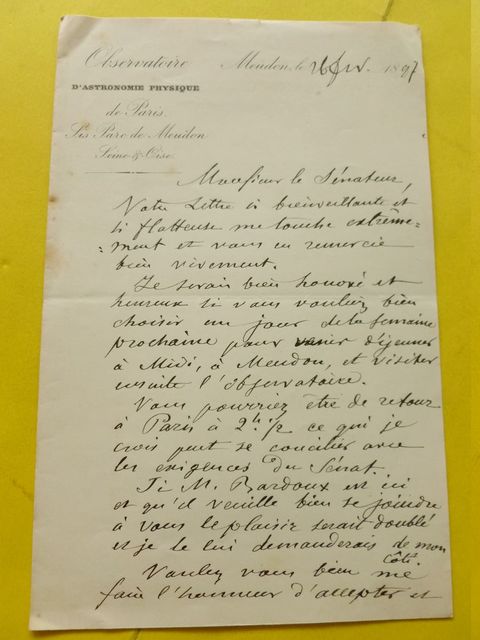 Observatoire
D'ASTRONOMIE PHYSIQUE
de Paris
Sis Parc de Meudon
Seine & Oise
Meudon, le 26 fév. 1897
Monsieur le Sénateur,
Votre lettre si bienveillante et
si flatteuse me touche extrême=
=ment et vous en remercie
bien vivement.
Je serais bien honoré et
heureux si vous vouliez bien
choisir un jour de la semaine
prochaine pour venir déjeuner
à Midi, à Meudon, et visiter
ensuite l'observatoire.
Vous pourriez être de retour
à Paris à 2h 1/2 ce qui je
crois peut se concilier avec
les exigences du Sénat.
Si M. Bardoux est ici
et qu'il veuille bien se joindre
à vous le plaisir serait doublé
et je le lui demanderais de mon
côté.
Voulez vous bien me
faire l'honneur d'accepter et